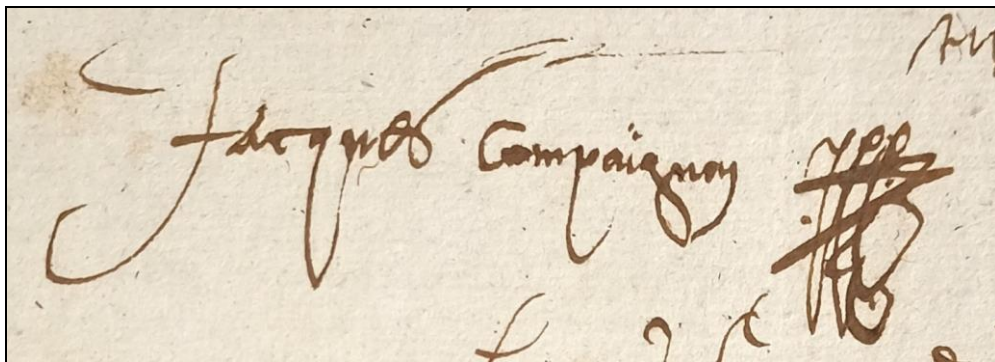 Jacques Compaignon